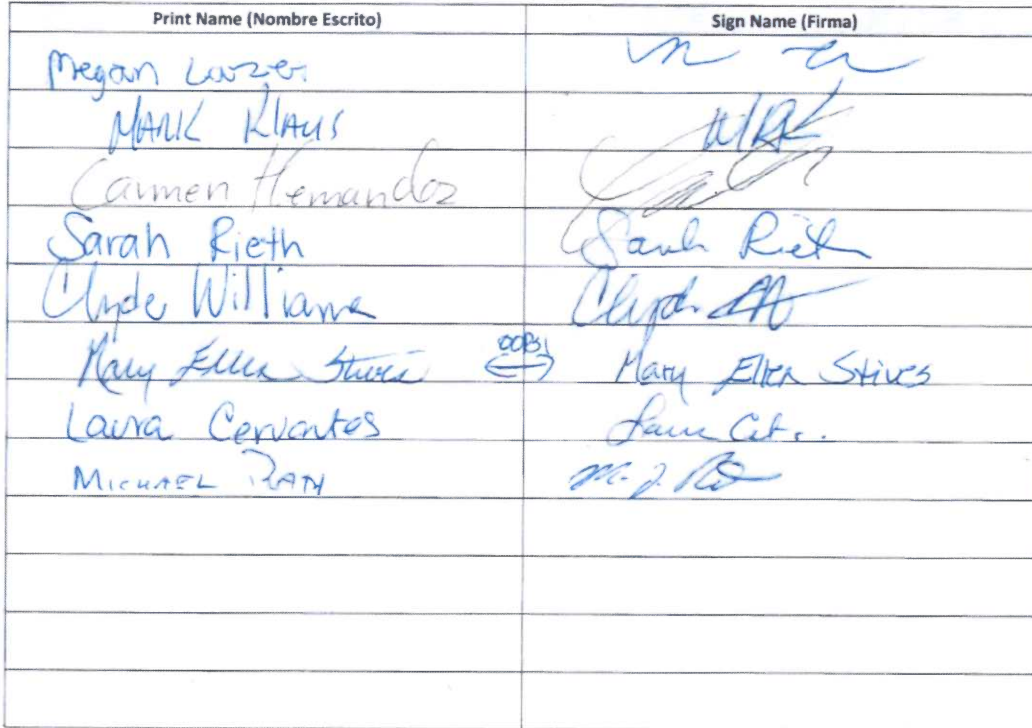 Print Name (Nombre Escrito) Sign Name (Firma)
Megan
MARK KLAUS MRK
Carmen Hernandez
Sarah Rieth Sarah Rieth
Clyde Williams Clyde
Mary Ellen Stives OOPS! Mary Ellen Stives
Laura Cervantes
MICHAEL M. J.